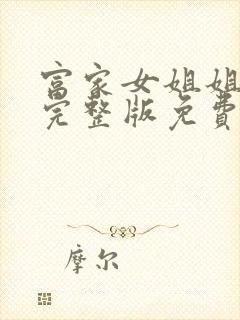 富家女姐姐
完整版免費
摩尔